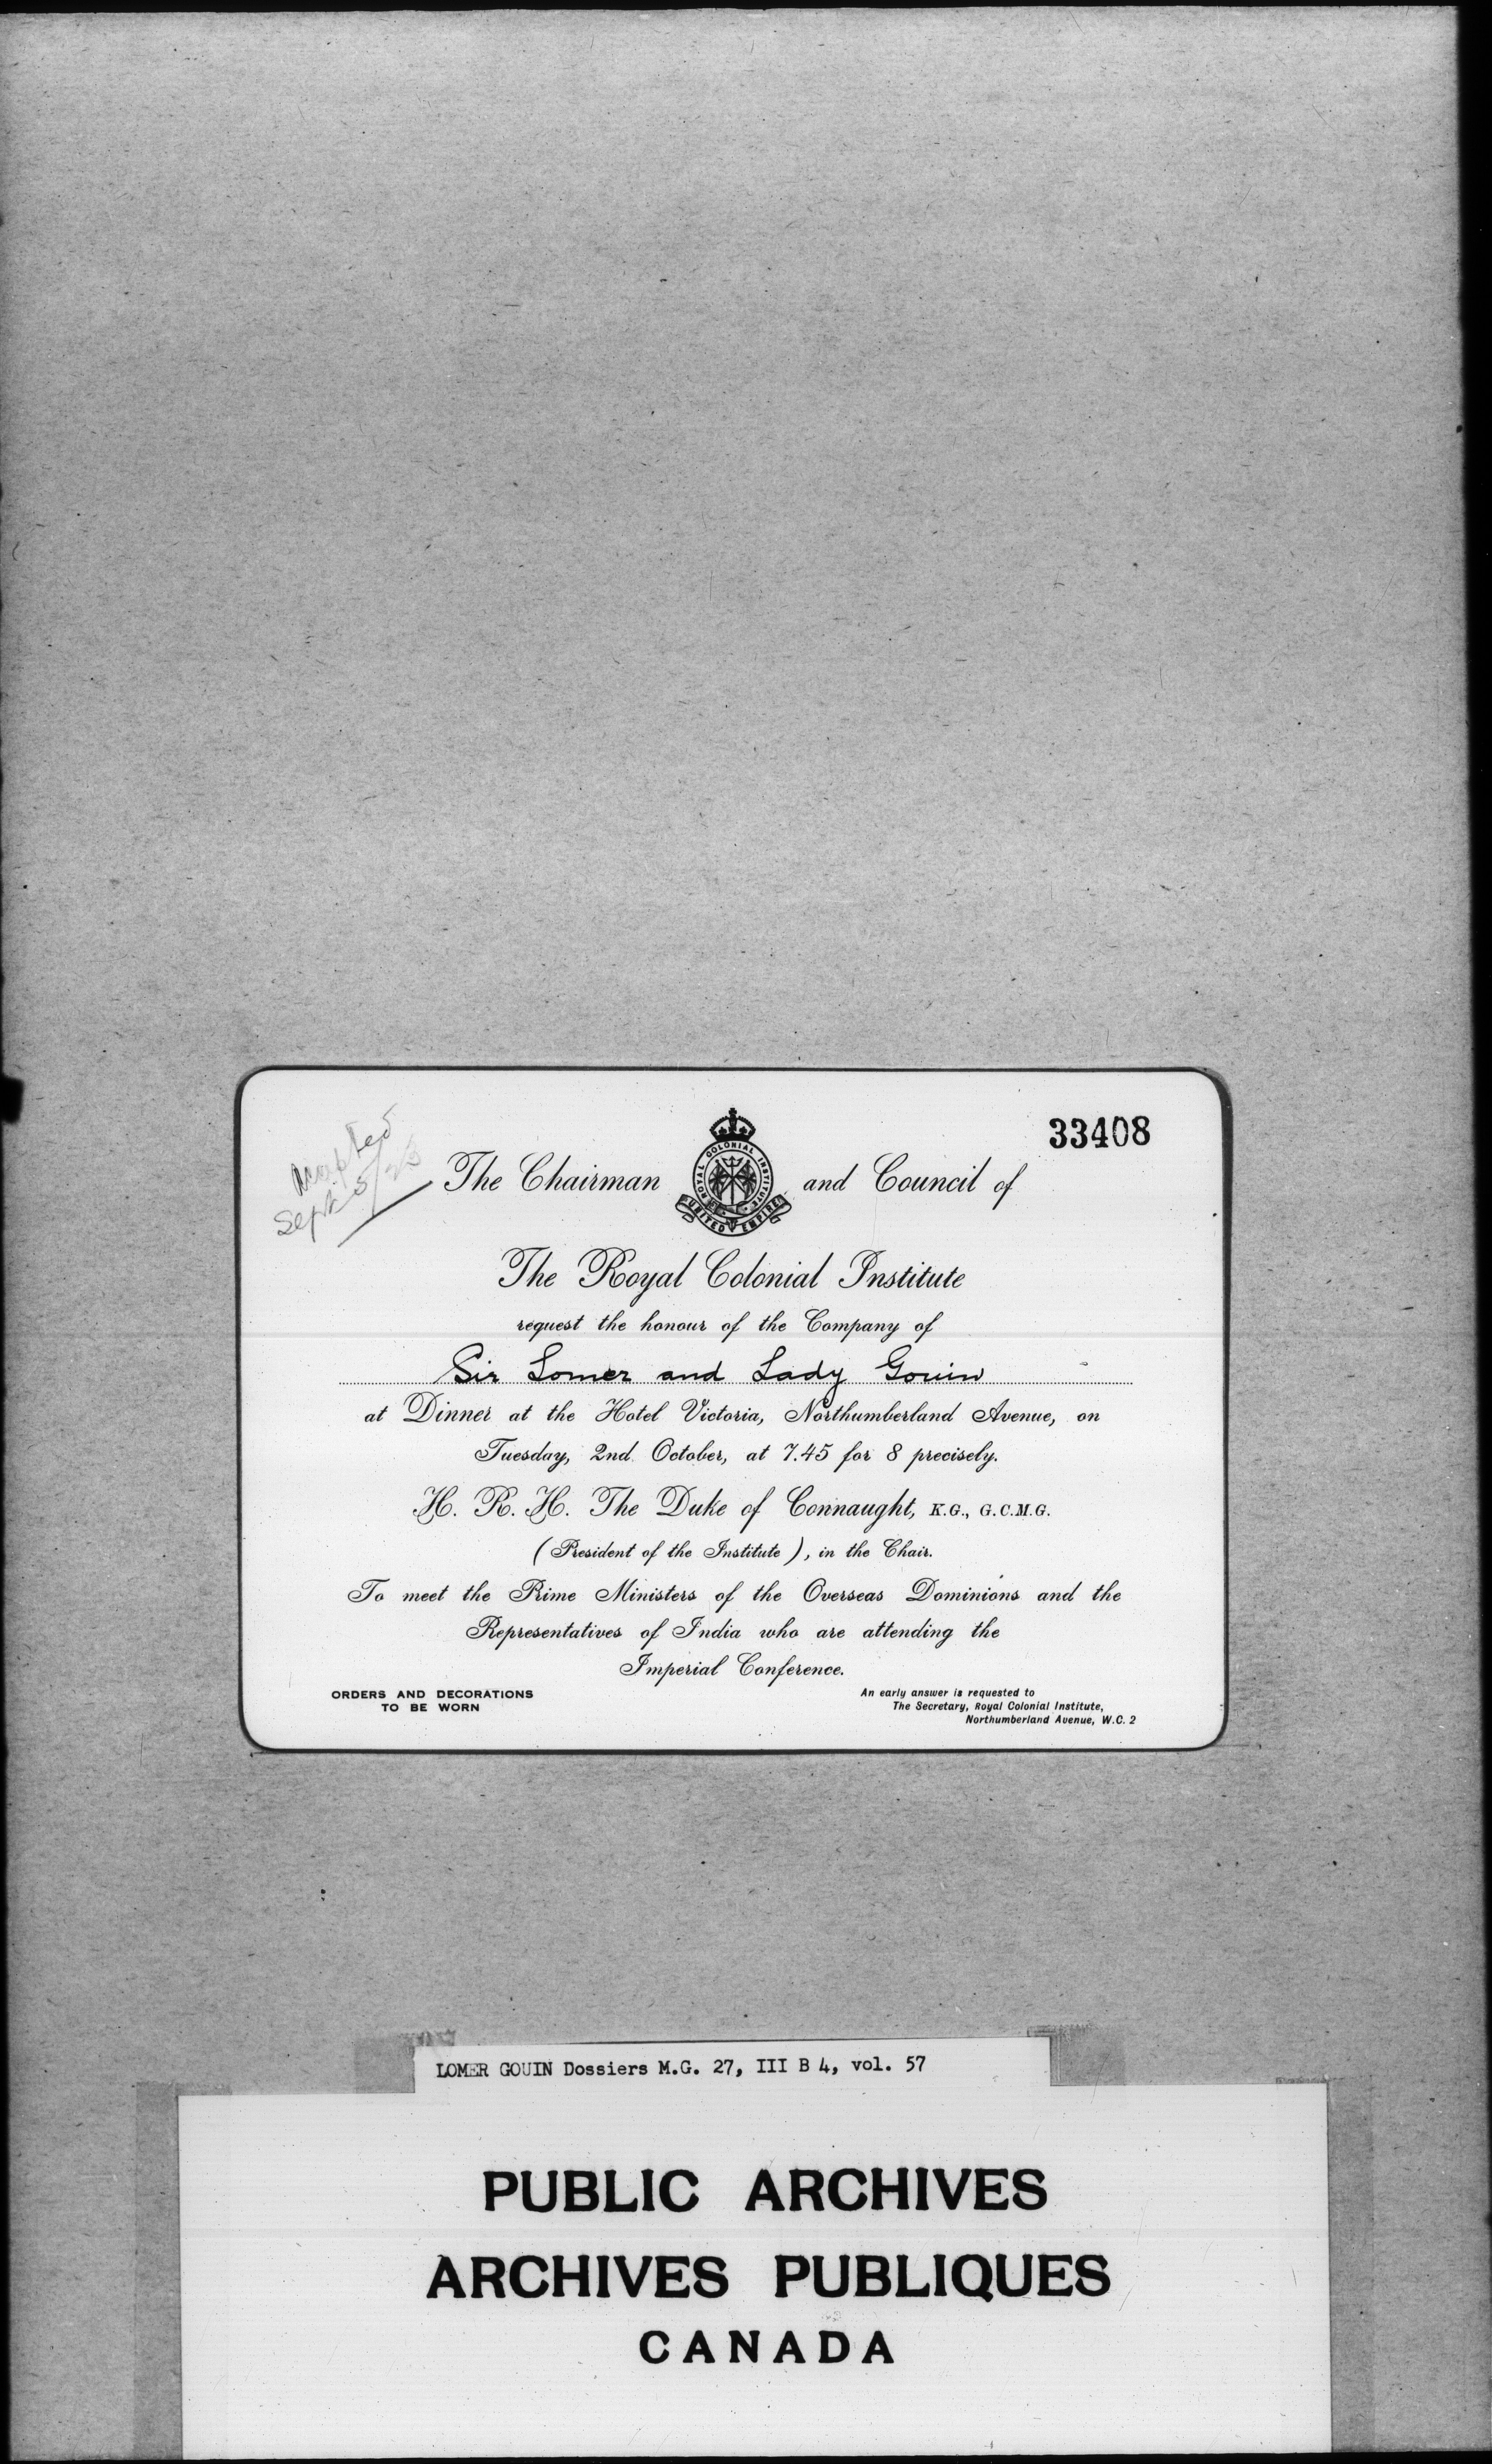 33408
Accepted
Sept 5/23
The Chairman and Council of
ROYAL COLONIAL INSTITUTE
UNITED EMPIRE
The Royal Colonial Institute
request the honour of the Company of
Sir Lomer and Lady Gouin
at Dinner at the Hotel Victoria, Northumberland Avenue, on
Tuesday, 2nd October, at 7.45 for 8 precisely.
H. R. H. The Duke of Connaught, K.G., G.C.M.G.
(President of the Institute), in the Chair.
To meet the Prime Ministers of the Overseas Dominions and the
Representatives of India who are attending the
Imperial Conference.
ORDERS AND DECORATIONS
TO BE WORN
An early answer is requested to
The Secretary, Royal Colonial Institute,
Northumberland Avenue, W.C. 2
LOMER GOUIN Dossiers M.G. 27, III B 4, vol. 57
PUBLIC ARCHIVES
ARCHIVES PUBLIQUES
CANADA